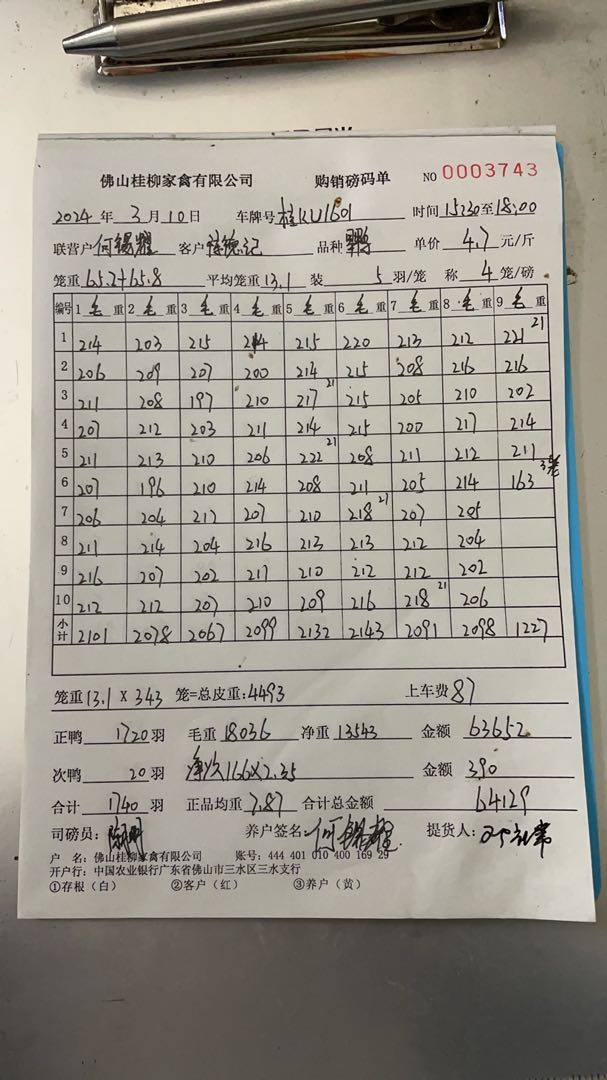 佛山桂柳家禽有限公司 购销磅码单 NO 0003743
2024 年 3 月 10 日 车牌号 桂KU1601 时间 15:30 至 18:00
联营户 何锡耀 客户 品种 单价 4.7 元/斤
笼重 65.2+65.8 平均笼重 13.1 装 5 羽/笼 称 4 笼/磅
编号 1 毛 重 2 毛 重 3 毛 重 4 毛 重 5 毛 重 6 毛 重 7 毛 重 8 毛 重 9 毛 重
1 214 203 215 214 215 220 213 212 221 21
2 206 209 207 200 214 215 208 216 216
3 211 208 197 210 217 21 215 205 210 202
4 207 212 203 211 214 215 200 217 214
5 211 213 210 206 222 21 208 211 212 211
6 207 196 210 214 208 211 205 214 163
7 206 204 212 207 210 218 21 207 205
8 211 214 204 216 213 213 212 204
9 216 207 202 217 210 212 212 202
10 212 212 207 210 209 216 218 21 206
小计 2101 2078 2067 2099 2132 2143 2091 2098 1227
笼重 13.1 X 343 笼=总皮重: 4493 上车费 87
正鸭 1720 羽 毛重 18036 净重 13543 金额 63652
次鸭 20 羽 166×2.35 金额 390
合计 1740 羽 正品均重 7.87 合计总金额 64129
司磅员: 养户签名: 何锡耀 提货人:
户 名: 佛山桂柳家禽有限公司 账号: 444 401 010 400 169 29
开户行: 中国农业银行广东省佛山市三水区三水支行
①存根（白） ②客户（红） ③养户（黄）